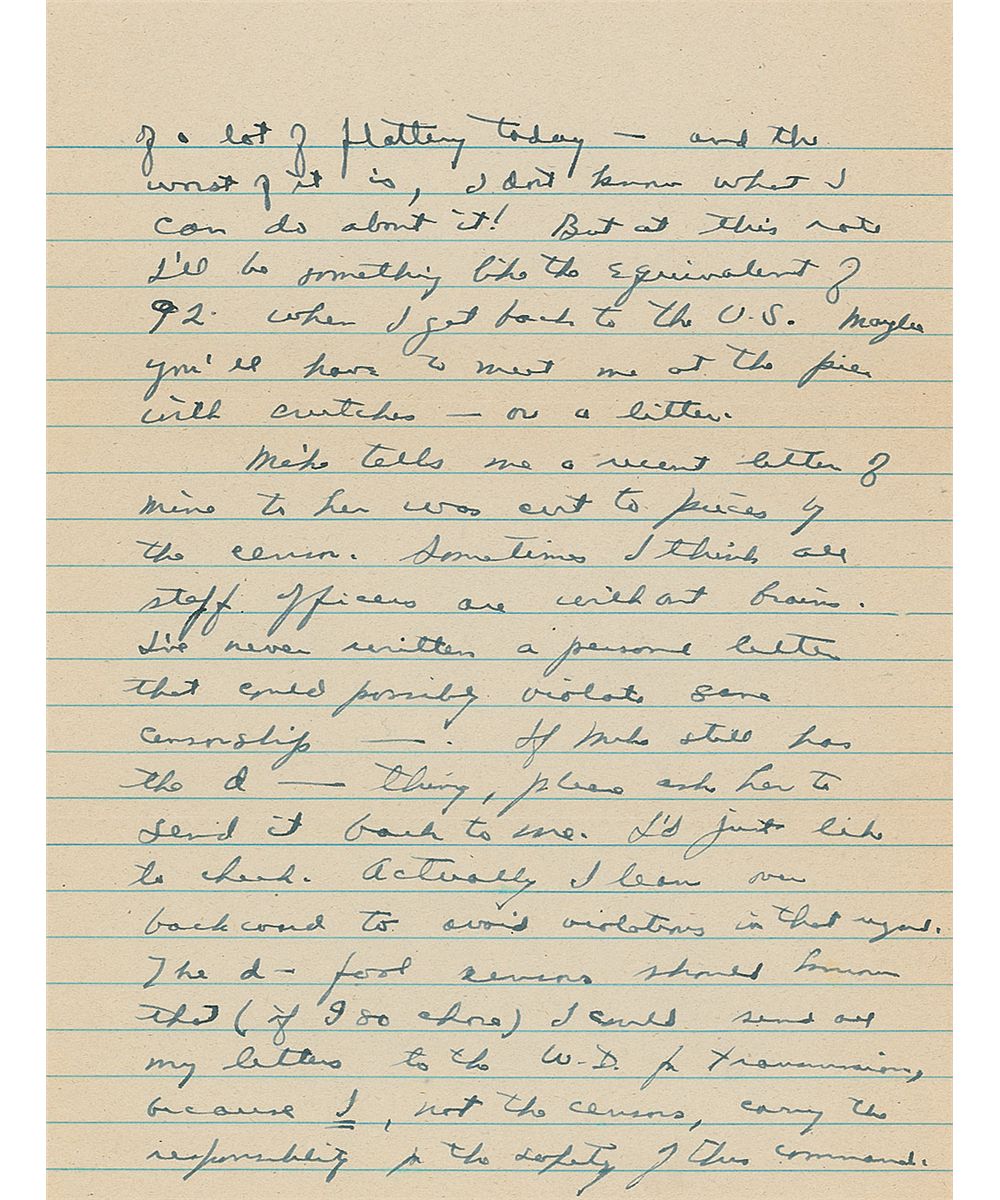 of a lot of flattery today — and the
worst of it is, I don't know what I
can do about it! But at this rate
I'll be something like the equivalent of
92 when I get back to the U.S. Maybe
you'll have to meet me at the pier
with crutches — or a litter.
Mike tells me a recent letter of
mine to her was cut to pieces by
the censor. Sometimes I think all
staff officers are without brains.
I've never written a personal letter
that could possibly violate sane
censorship —. If Mike still has
the d — thing, please ask her to
send it back to me. I'd just like
to check. Actually I lean over
backward to avoid violations in that regard.
The d — fool censors should know
that (if I so chose) I could send all
my letters to the W.D. for transmission,
because I, not the censors, carry the
responsibility for the safety of this command.